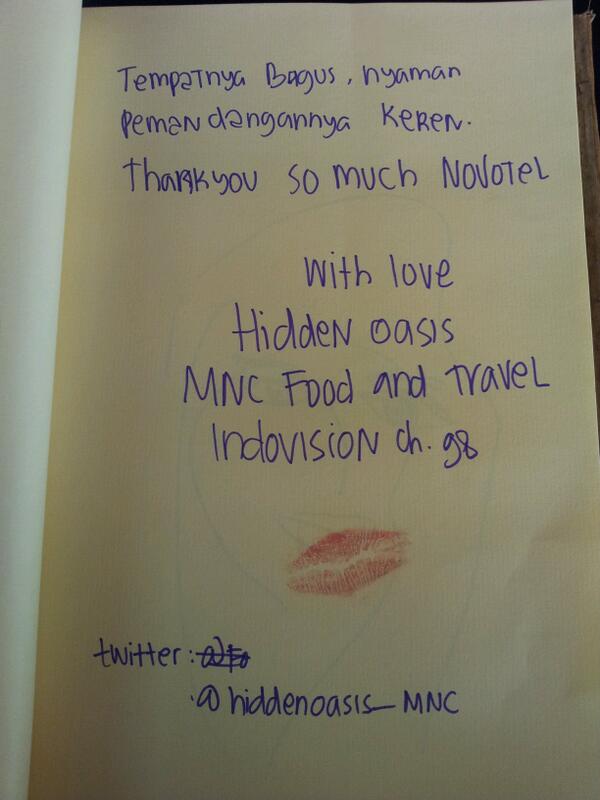 Tempatnya Bagus, nyaman
Pemandangannya KeReN.
Thankyou so much Novotel
With love
Hidden oasis
MNC Food and Travel
Indovision ch. 98
twitter:
@hiddenoasis_MNC